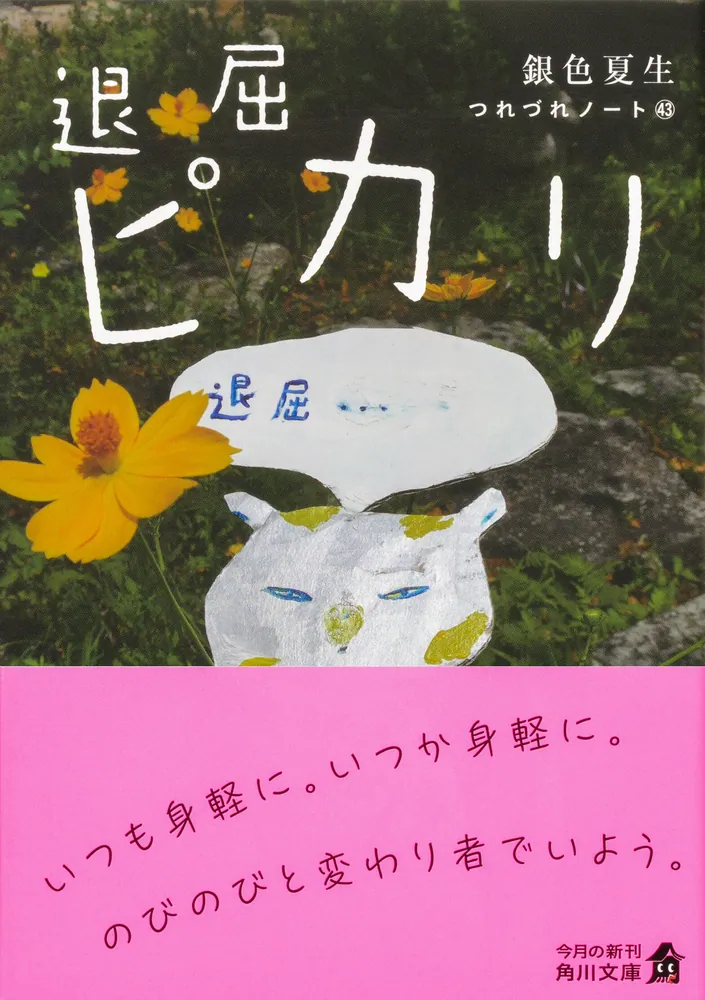 銀色夏生
つれづれノート㊸
退屈
ピカリ
退屈…
いつも身軽に。いつか身軽に。
のびのびと変わり者でいよう。
今月の新刊
角川文庫